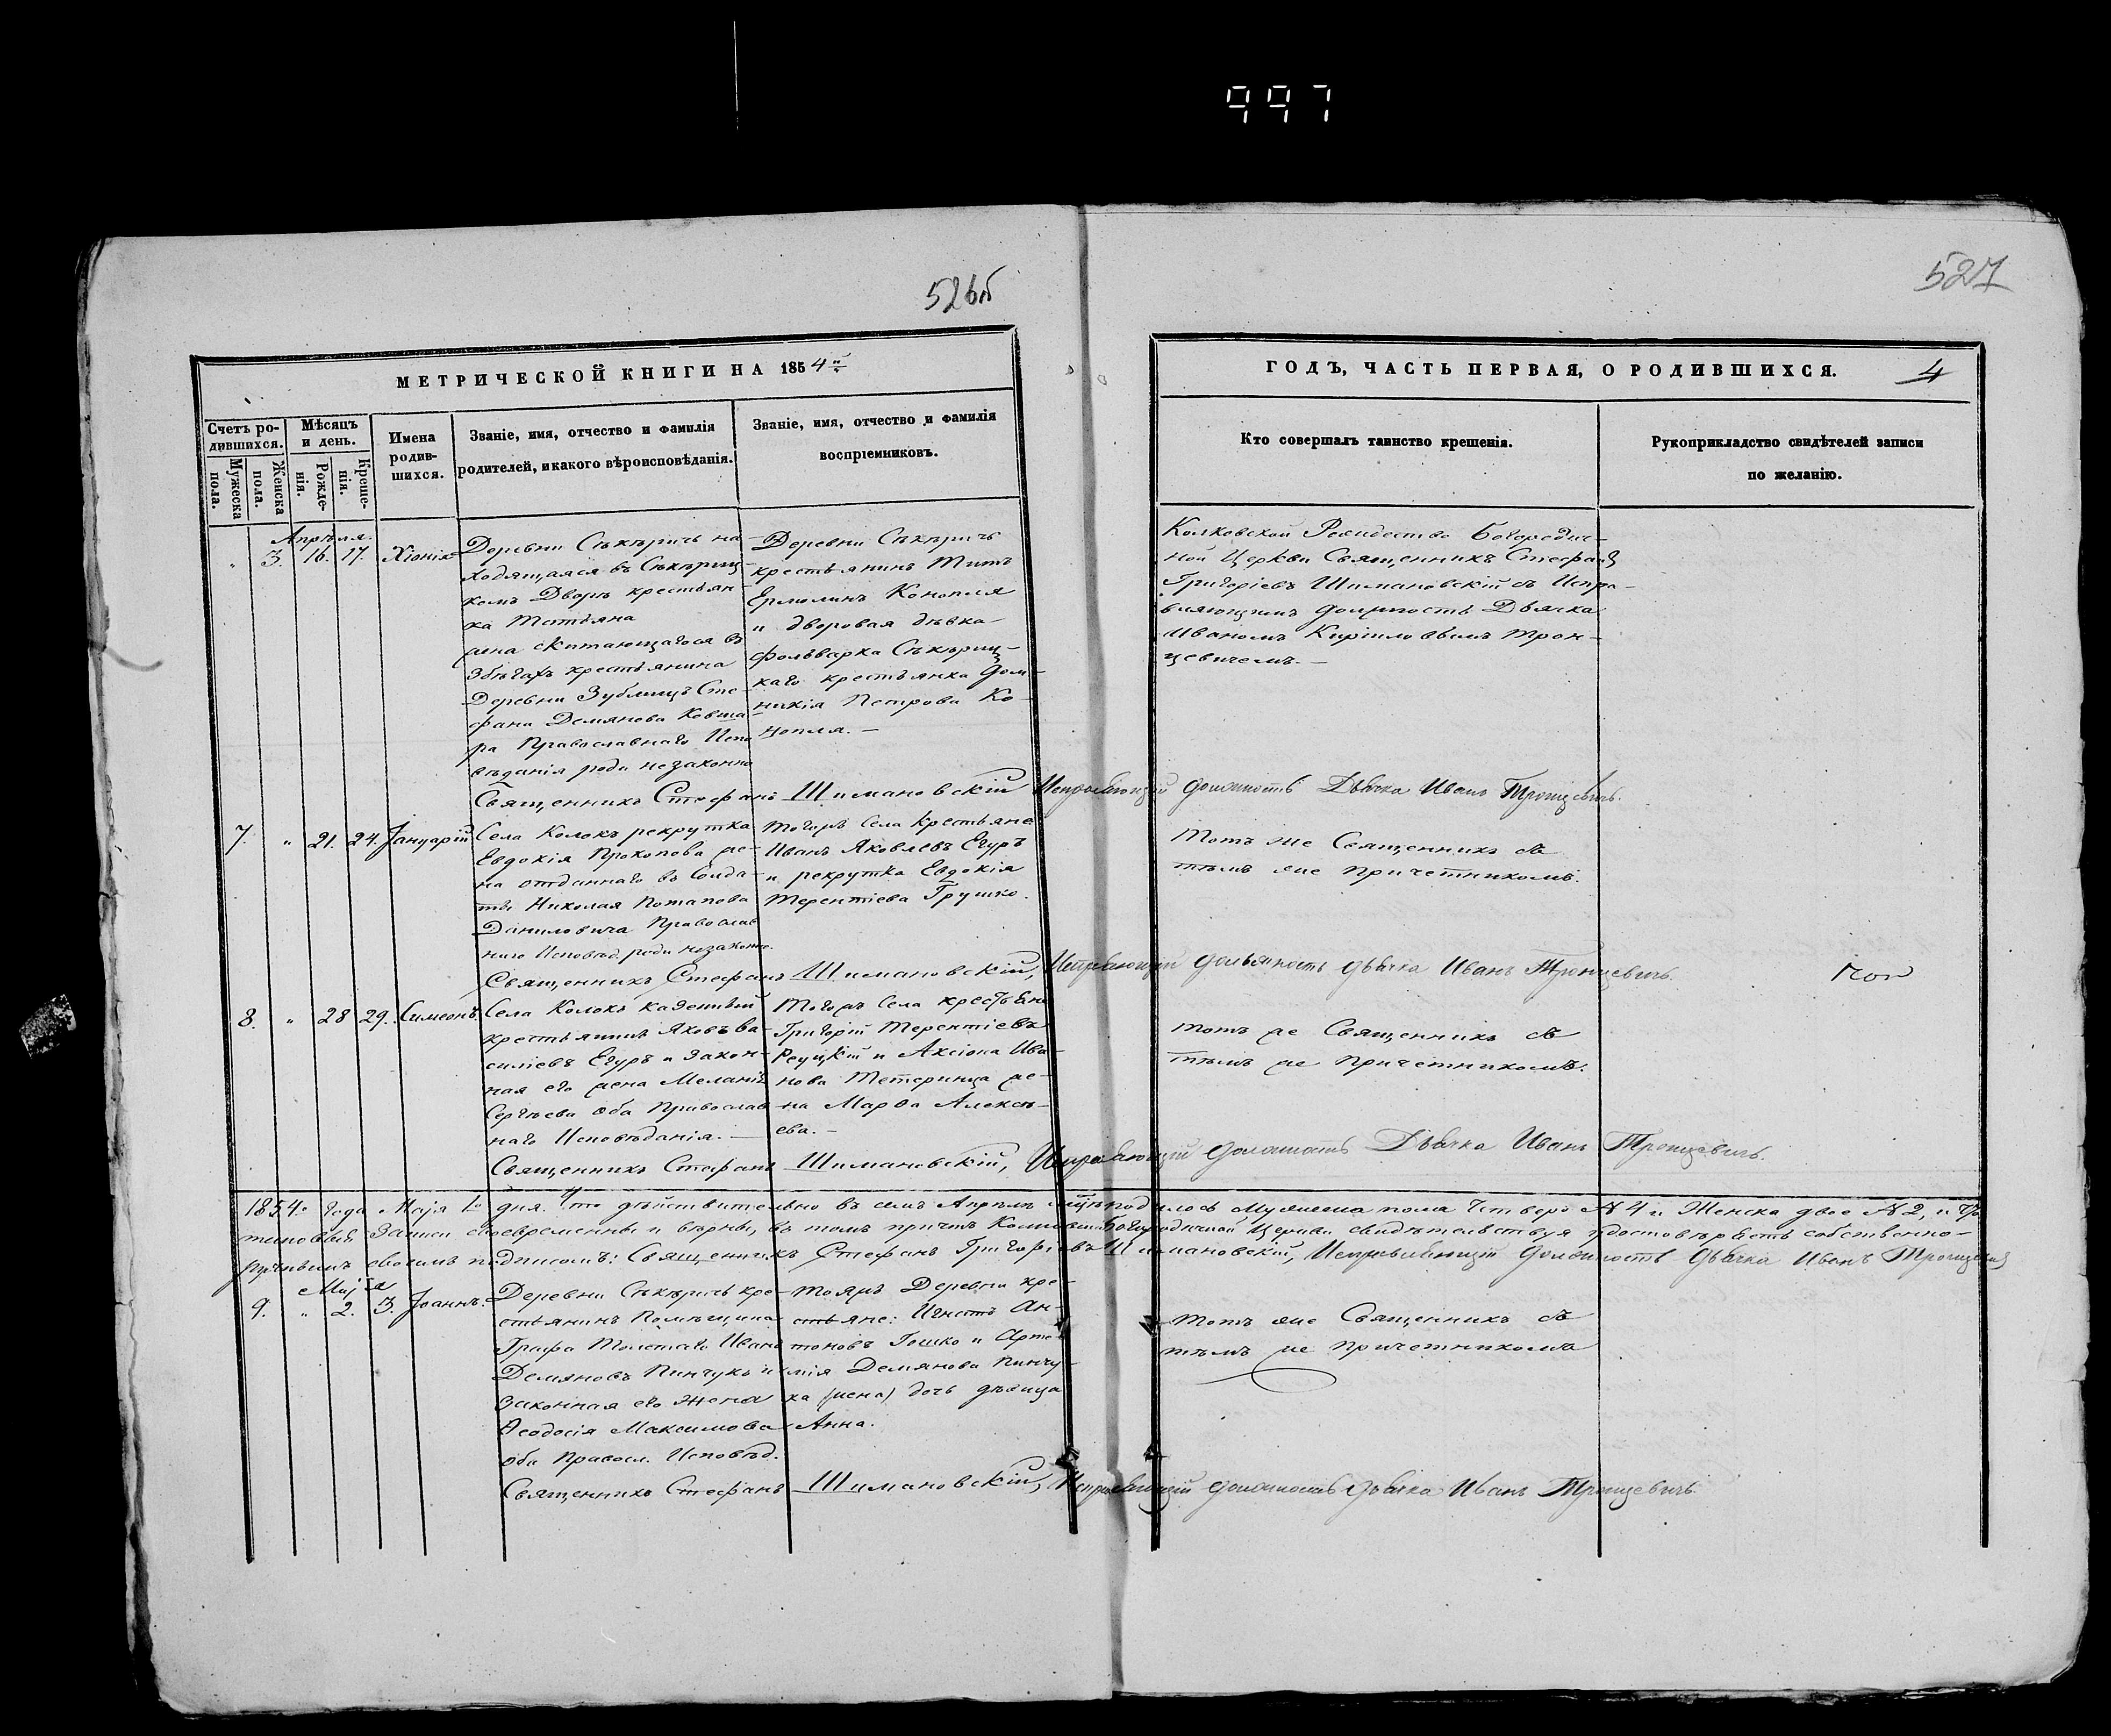 997
526б
527
МЕТРИЧЕСКОЙ КНИГИ НА 1854й
ГОДЪ, ЧАСТЬ ПЕРВАЯ, О РОДИВШИХСЯ.
4
Счетъ ро-
дившихся.
Мужеска
пола.
Женска
пола.
Мѣсяцъ
и день.
Рожде-
нія.
Креще-
нія.
Имена
родив-
шихся.
Званіе, имя, отчество и фамилія
родителей, и какого вѣроисповѣданія.
Званіе, имя, отчество и фамилія
воспріемниковъ.
Кто совершалъ таинство крещенія.
Рукоприкладство свидѣтелей записи
по желанію.
Апрѣля.
" 3. 16. 17. Хіонія
Деревни Сѣкѣричъ на-
ходящаяся въ Сѣкѣриц-
комъ Дворѣ крестьян-
ка Татьяна
жена скитающагося въ
збѣгахъ крестьянина
Деревни Зублищъ Сте-
фана Демянова Ковша-
ра Православнаго Испо
вѣданія роди незаконно
Деревни Сѣкѣричъ
крестьянинъ Титъ
Ермолинъ Конопля
и дворовая дѣвка
фольварка Сѣкѣриц-
каго крестьянка Дом-
никія Петрова Ко-
нопля.
Колковской Рождество Богородич-
ной Церкви Священникъ Стефанъ
Григоріевъ Шимановскій съ Испра-
вляющимъ должность Дьячка
Иваномъ Кириловымъ Трон-
цевичемъ.
Священникъ Стефанъ Шимановскій Исправляющій должность Дьячка Иванъ Тронцевичъ.
7. " 21. 24. Јануарій
Села Колокъ рекрутка
Евдокія Прокопова же-
на отданнаго въ Солда-
ты Николая Потапова
Даниловича Православ
наго Исповѣд. роди незаконно.
Тогожъ Села Крестьяне
Иванъ Яковлевъ Егуръ
и рекрутка Евдокія
Терентіева Грушко.
Тотъ же Священникъ съ
тѣмъ же Причетникомъ.
Священникъ Стефанъ Шимановскій, Исправляющій должность дьячка Иванъ Тронцевичъ.
8. " 28 29. Симеонъ.
Села Колокъ казенный
крестьянинъ Яковъ Ва-
силіевъ Егуръ и закон-
ная его жена Меланія
Сергѣева оба Православ
наго Исповѣданія.
Тогожъ Села крестьяне
Григорій Терентіевъ
Реуцкій и Аксіона Ива-
нова Тетеринца же-
на Марѳа Алексѣ-
ева.
тотъ же Священникъ съ
тѣмъ же Причетникомъ.
Священникъ Стефанъ Шимановскій, Исправляющій должность Дьячка Иванъ Тронцевичъ.
1854го Года Маја 1го дня. Что дѣйствительно въ семъ Апрѣлѣ мцѣ родилось Мужеска пола Четверо N 4 и Женска двое N 2, и что
таковыя Записи своевременны и вѣрны, въ томъ причтъ Колковской Богородичной Церкви свидѣтельствуя удостовѣряетъ собственно-
ручнымъ своимъ подписомъ: Священникъ Стефанъ Григоріевъ Шимановскій, Исправляющій Должность Дьячка Иванъ Тронцевичъ
Маја
9. " 2. 3. Јоаннъ.
Деревни Сѣкѣричъ кре-
стьянинъ Помѣщика
Графа Толстаго Иванъ
Демяновъ Пинчукъ и
законная его жена
Ѳеодосія Максимова
оба Правосл. Исповѣд.
тояжъ Деревни кре-
стьяне: Игнатъ Ан-
тоновъ Гошко и Арте-
мія Демянова Пинчу-
ка (жена) дочь дѣвица
Анна.
тотъ же Священникъ съ
тѣмъ же причетникомъ
Священникъ Стефанъ Шимановскій, Исправляющій должность дьячка Иванъ Тронцевичъ.